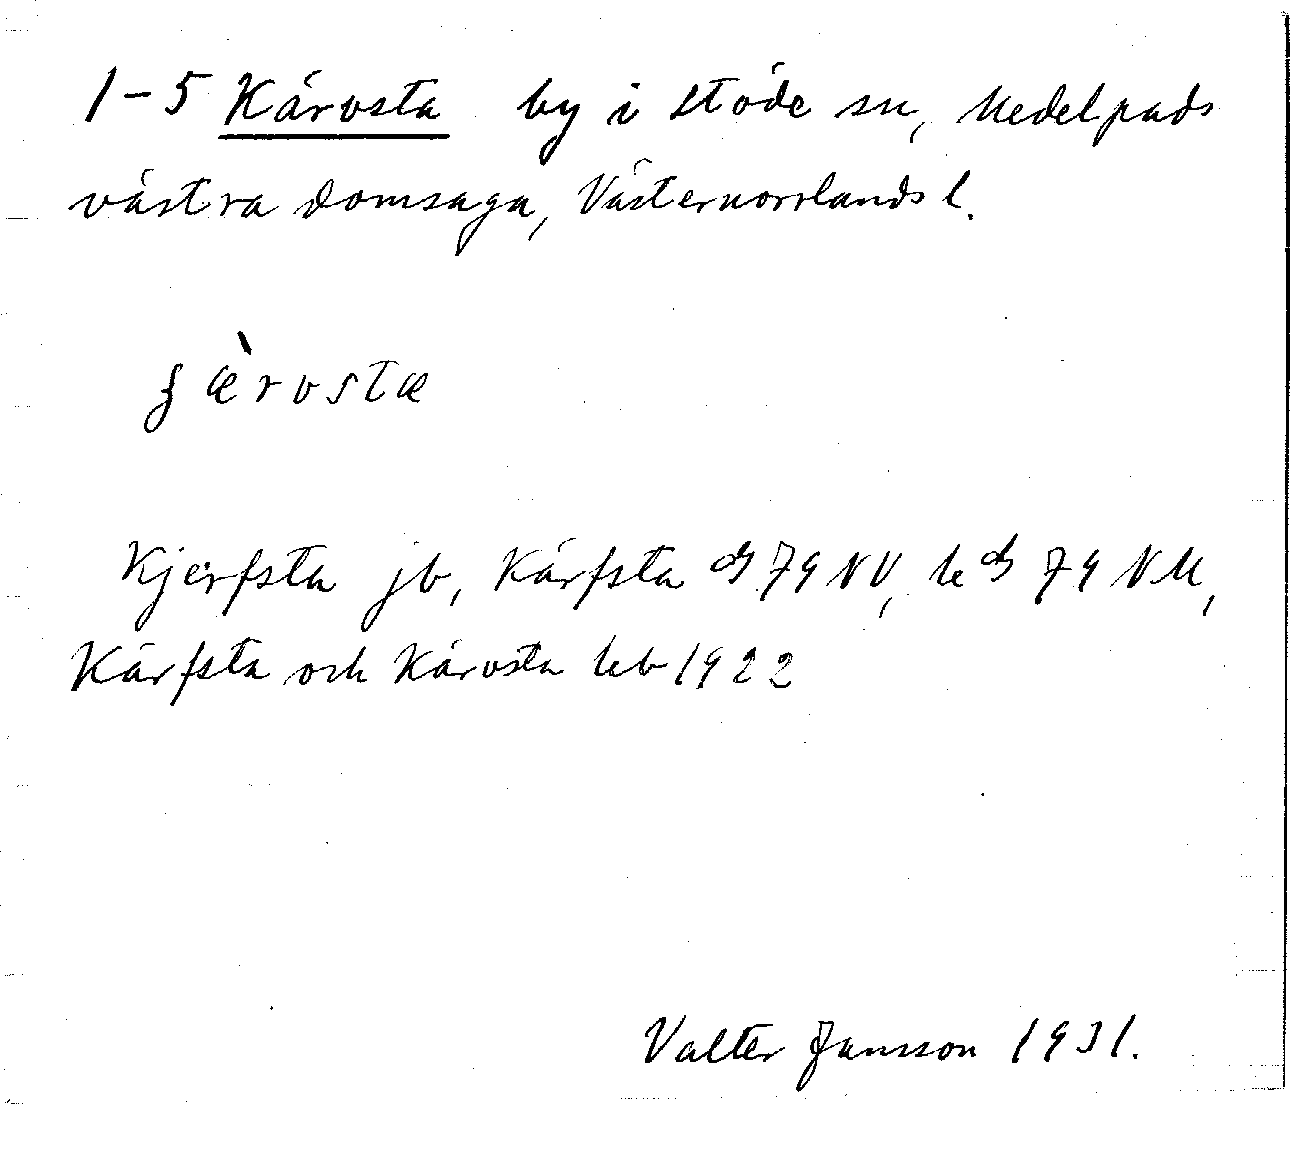 1-5 Kärvsta by i Stöde sn, Medelpads
västra domsaga, Västernorrlands l.
ʃæ̀rvsta
Kjerfsta jb, Kärfsta ds 79 NV, ks 79 NV,
Kärfsta och Kärvsta kb 1922
Valter Jansson 1931.